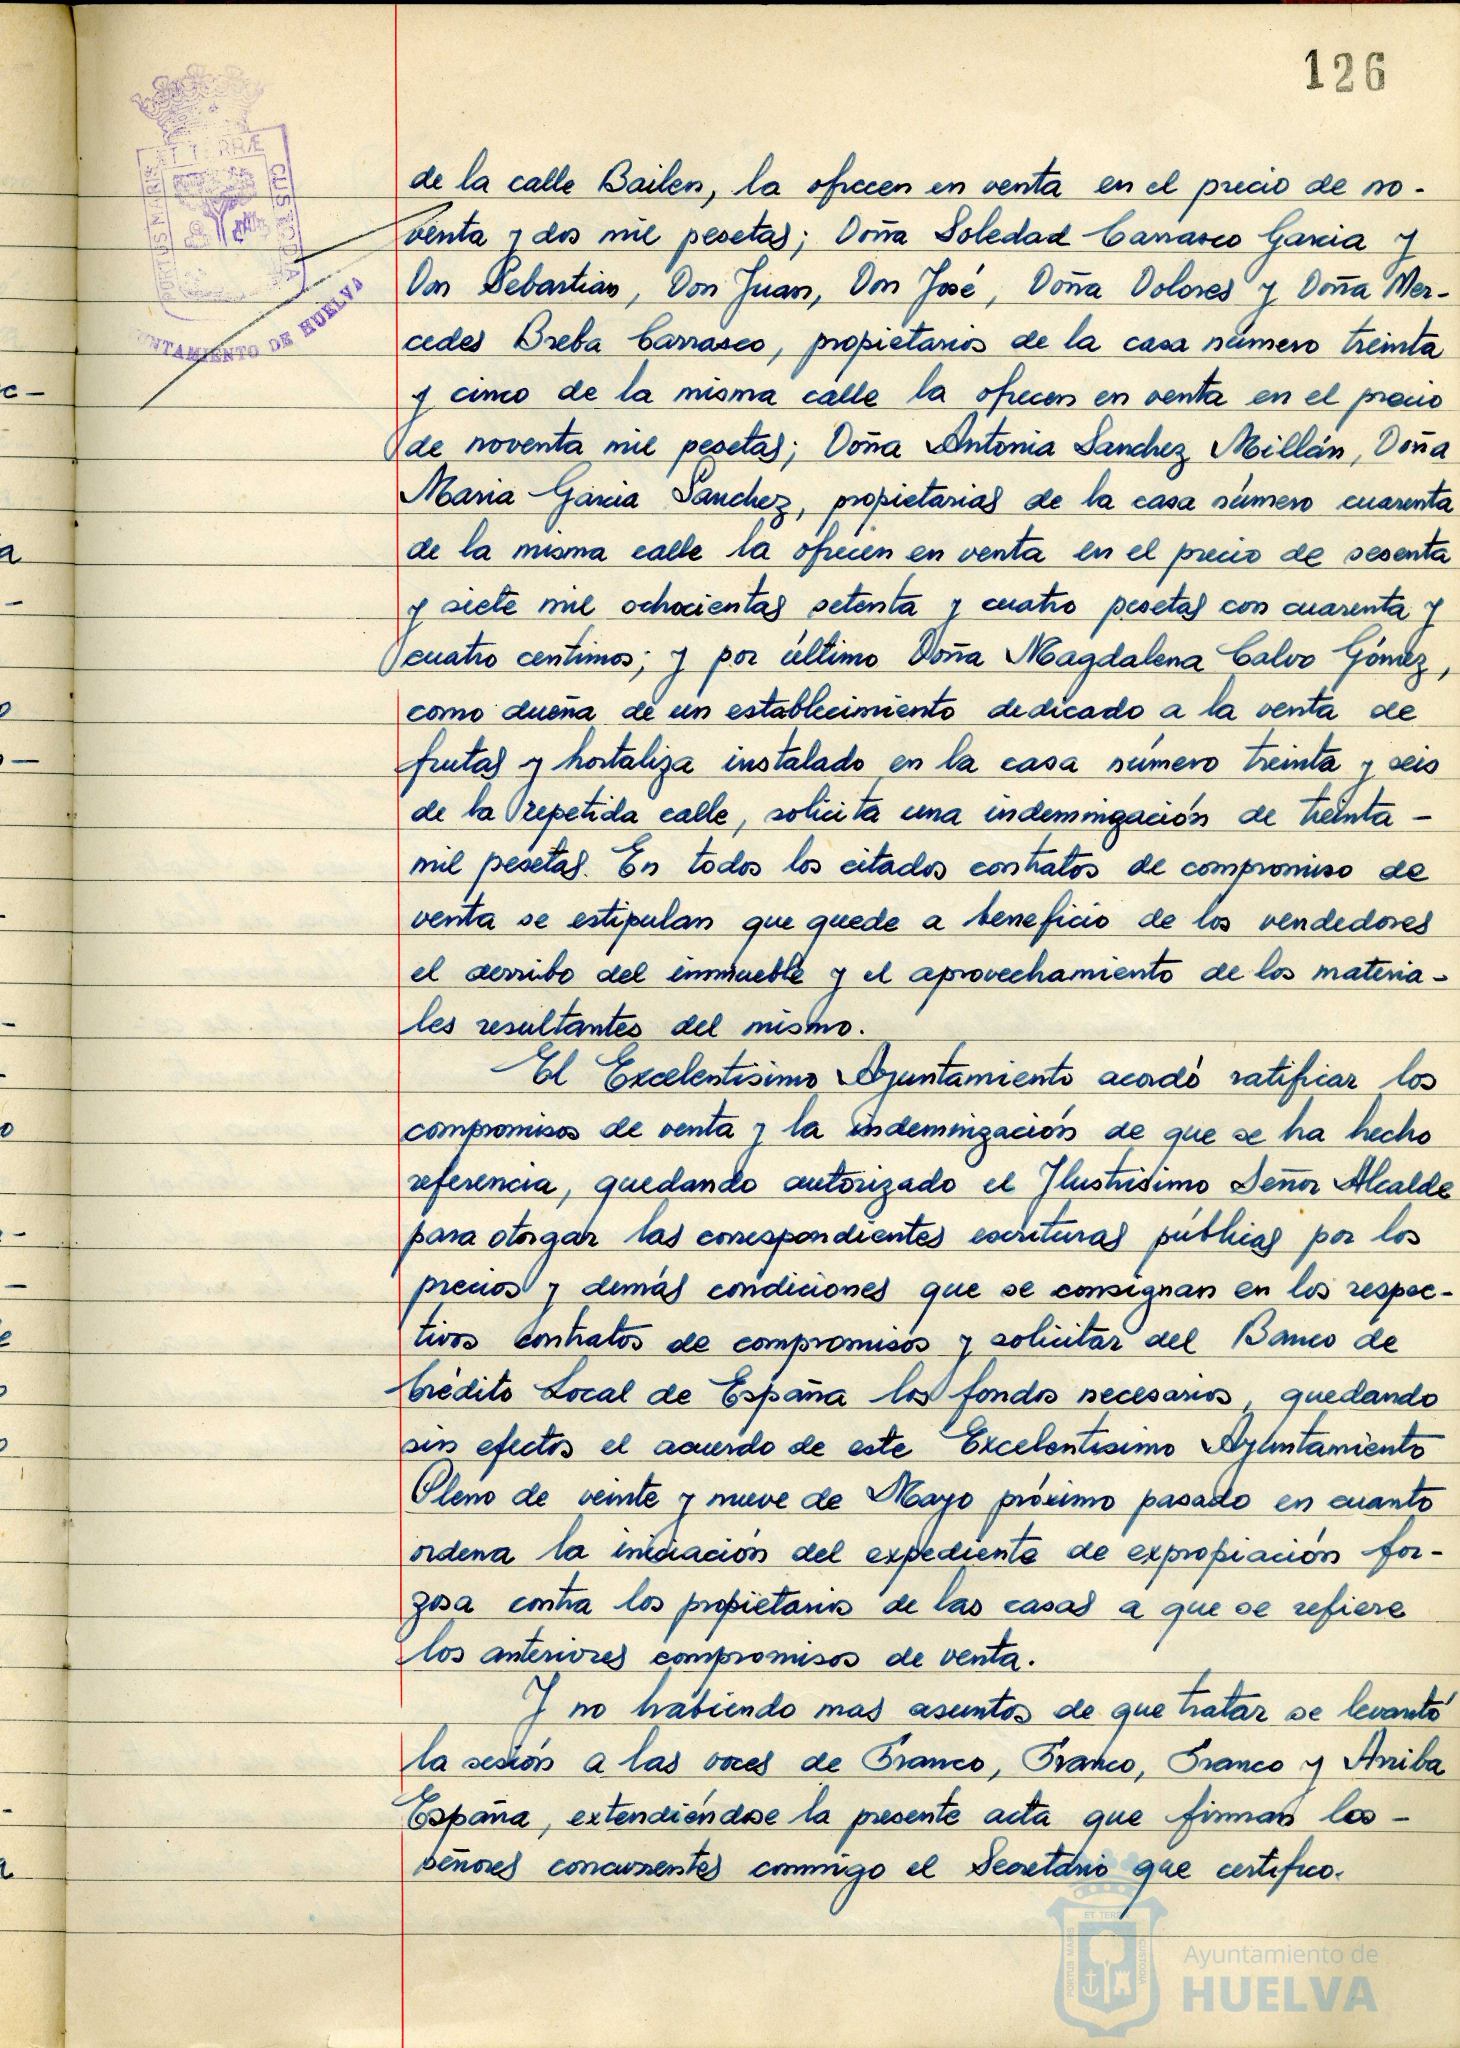 126
PORTUS MARIS ET TERRÆ CUSTODIA
UNTAMIENTO DE HUELVA
de la calle Bailen, la ofrecen en venta en el precio de no-
venta y dos mil pesetas; Doña Soledad Carrasco Garcia y
Don Sebastian, Don Juan, Don José, Doña Dolores y Doña Mer-
cedes Breba Carrasco, propietarios de la casa número treinta
y cinco de la misma calle la ofrecen en venta en el precio
de noventa mil pesetas; Doña Antonia Sanchez Millán, Doña
Maria Garcia Sanchez, propietarias de la casa número cuarenta
de la misma calle la ofrecen en venta en el precio de sesenta
y siete mil ochocientas setenta y cuatro pesetas con cuarenta y
cuatro centimos; y por último Doña Magdalena Calvo Gómez,
como dueña de un establecimiento dedicado a la venta de
frutas y hortaliza instalado en la casa número treinta y seis
de la repetida calle, solicita una indemnización de treinta -
mil pesetas. En todos los citados contratos de compromiso de
venta se estipulan que quede a beneficio de los vendedores
el derribo del inmueble y el aprovechamiento de los materia-
les resultantes del mismo.
El Excelentisimo Ayuntamiento acordó ratificar los
compromisos de venta y la indemnización de que se ha hecho
referencia, quedando autorizado el Ilustrisimo Señor Alcalde
para otorgar las correspondientes escrituras públicas por los
precios y demás condiciones que se consignan en los respec-
tivos contratos de compromisos y solicitar del Banco de
Crédito Local de España los fondos necesarios, quedando
sin efectos el acuerdo de este Excelentisimo Ayuntamiento
Pleno de veinte y nueve de Mayo próximo pasado en cuanto
ordena la iniciación del expediente de expropiación for-
zosa contra los propietarios de las casas a que se refiere
los anteriores compromisos de venta.
Y no habiendo mas asuntos de que tratar se levantó
la sesión a las voces de Franco, Franco, Franco y Arriba
España, extendiéndose la presente acta que firman los -
señores concurrentes conmigo el Secretario que certifico.
PORTUS MARIS ET TERRÆ CUSTODIA
Ayuntamiento de
HUELVA